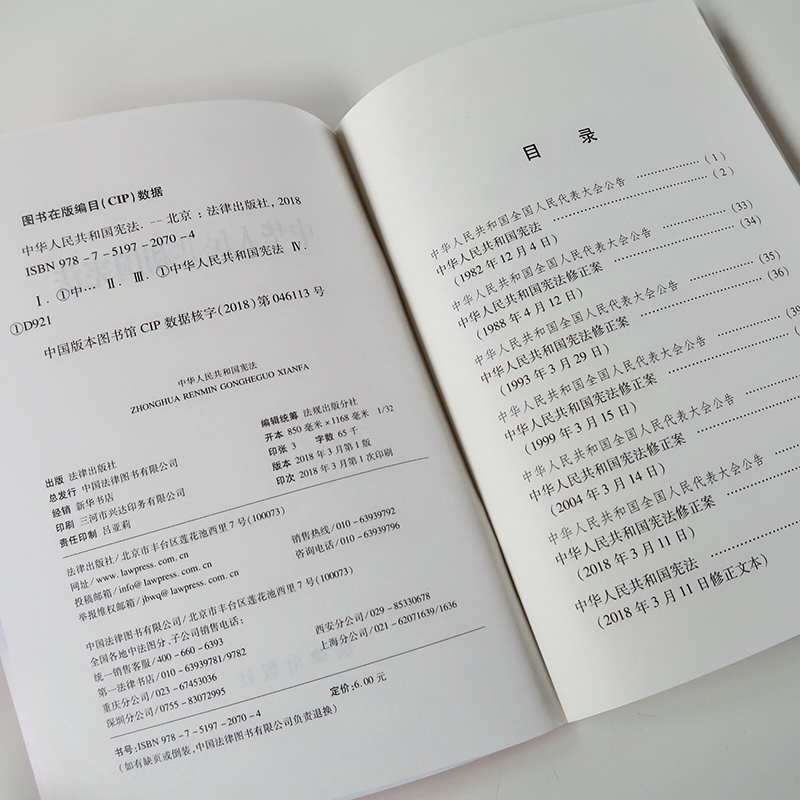 图书在版编目(CIP)数据
中华人民共和国宪法. -- 北京 : 法律出版社, 2018
ISBN 978-7-5197-2070-4
Ⅰ. ①中… Ⅱ. Ⅲ. ①中华人民共和国宪法 Ⅳ.
①D921
中国版本图书馆 CIP 数据核字(2018)第 046113 号
中华人民共和国宪法
ZHONGHUA RENMIN GONGHEGUO XIANFA
出版 法律出版社
总发行 中国法律图书有限公司
经销 新华书店
印刷 三河市兴达印务有限公司
责任印制 吕亚莉
编辑统筹 法规出版分社
开本 850 毫米×1168 毫米 1/32
印张 3 字数 65 千
版本 2018 年 3 月第 1 版
印次 2018 年 3 月第 1 次印刷
法律出版社/北京市丰台区莲花池西里 7 号(100073)
网址/www.lawpress.com.cn
投稿邮箱/info@lawpress.com.cn
举报维权邮箱/jbwq@lawpress.com.cn
销售热线/010-63939792
咨询电话/010-63939796
中国法律图书有限公司/北京市丰台区莲花池西里 7 号(100073)
全国各地中法图分、子公司销售电话:
统一销售客服/400-660-6393
第一法律书店/010-63939781/9782
重庆分公司/023-67453036
深圳分公司/0755-83072995
西安分公司/029-85330678
上海分公司/021-62071639/1636
书号:ISBN 978-7-5197-2070-4
定价:6.00 元
(如有缺页或倒装,中国法律图书有限公司负责退换)
目 录
中华人民共和国全国人民代表大会公告 ……………… (1)
中华人民共和国宪法 ……………… (2)
(1982 年 12 月 4 日)
中华人民共和国全国人民代表大会公告 ……………… (33)
中华人民共和国宪法修正案 ……………… (34)
(1988 年 4 月 12 日)
中华人民共和国全国人民代表大会公告 ……………… (35)
中华人民共和国宪法修正案 ……………… (36)
(1993 年 3 月 29 日)
中华人民共和国全国人民代表大会公告 ……………… (39
中华人民共和国宪法修正案 ………………
(1999 年 3 月 15 日)
中华人民共和国全国人民代表大会公告 ………………
中华人民共和国宪法修正案 ………………
(2004 年 3 月 14 日)
中华人民共和国全国人民代表大会公告 ………………
中华人民共和国宪法修正案 ………………
(2018 年 3 月 11 日)
中华人民共和国宪法 ………………
(2018 年 3 月 11 日修正文本)